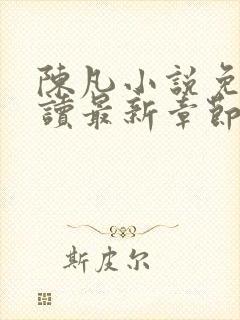 陳凡小說免
讀最新章節
斯皮尔